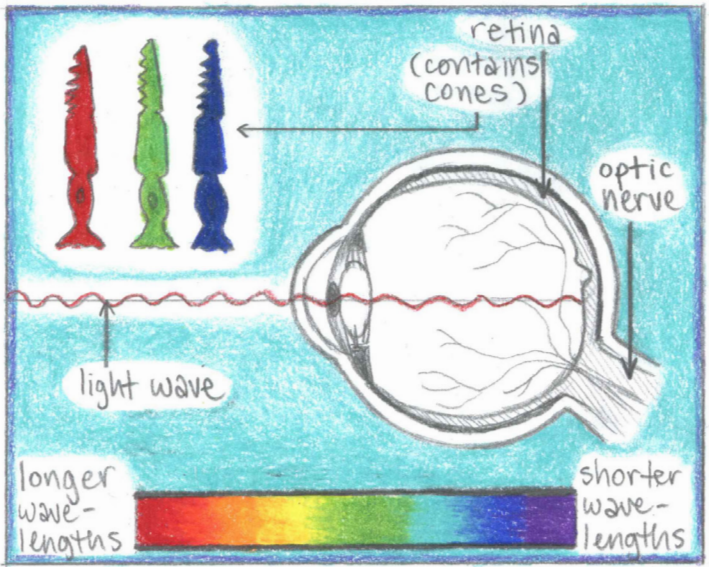 retina
(contains
cones)
optic
nerve
light wave
longer
wave-
lengths
shorter
wave-
lengths